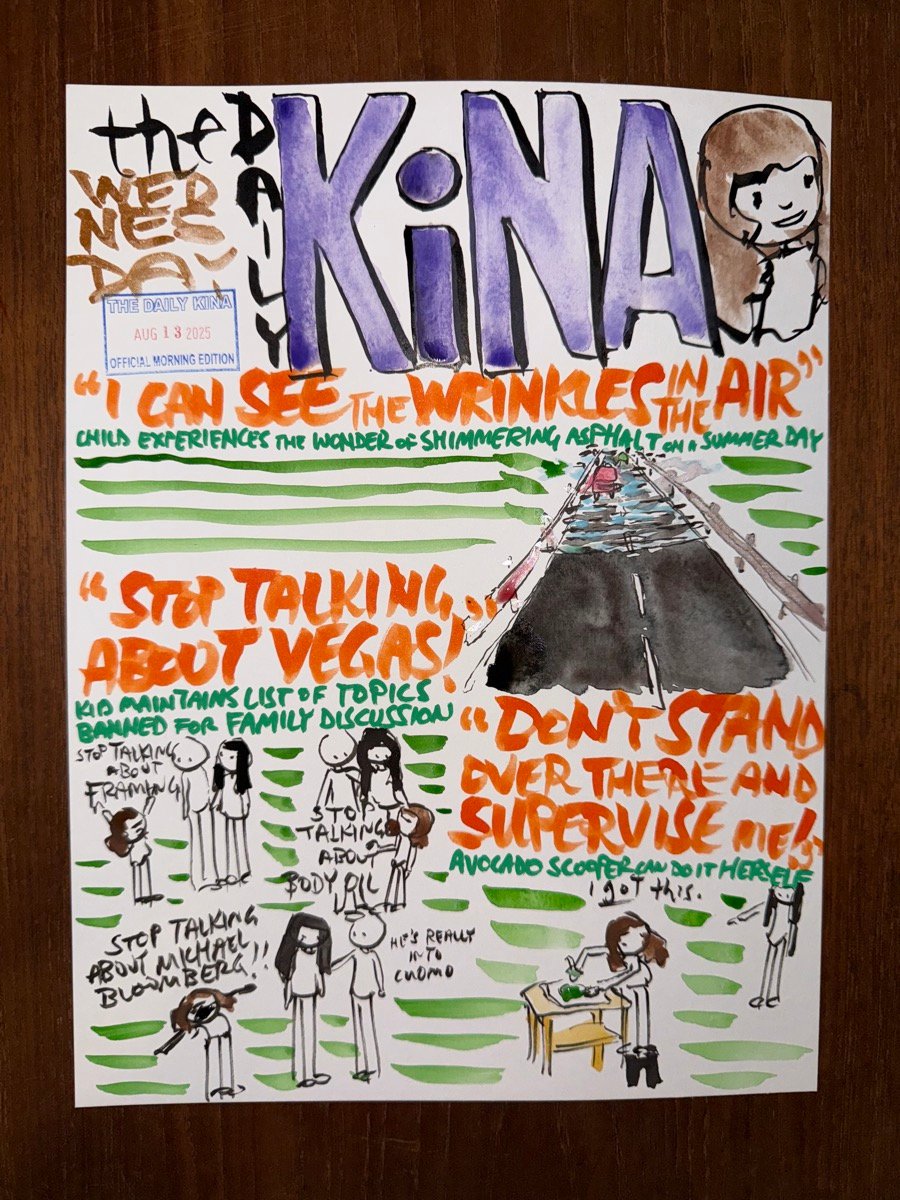 the
DAILY
KiNA
WED
NES
DAY
THE DAILY KINA
AUG 13 2025
OFFICIAL MORNING EDITION
"I CAN SEE THE WRINKLES IN THE AIR"
CHILD EXPERIENCES THE WONDER OF SHIMMERING ASPHALT ON A SUMMER DAY
"STOP TALKING
ABOUT VEGAS!"
KID MAINTAINS LIST OF TOPICS
BANNED FOR FAMILY DISCUSSION
STOP TALKING
ABOUT
FRAMING
STOP
TALKING
ABOUT
BODY OIL
STOP TALKING
ABOUT MICHAEL
BLOOMBERG!!
HE'S REALLY
INTO
CUOMO
"DON'T STAND
OVER THERE AND
SUPERVISE ME!"
AVOCADO SCOOPER CAN DO IT HERSELF
I GOT THIS.